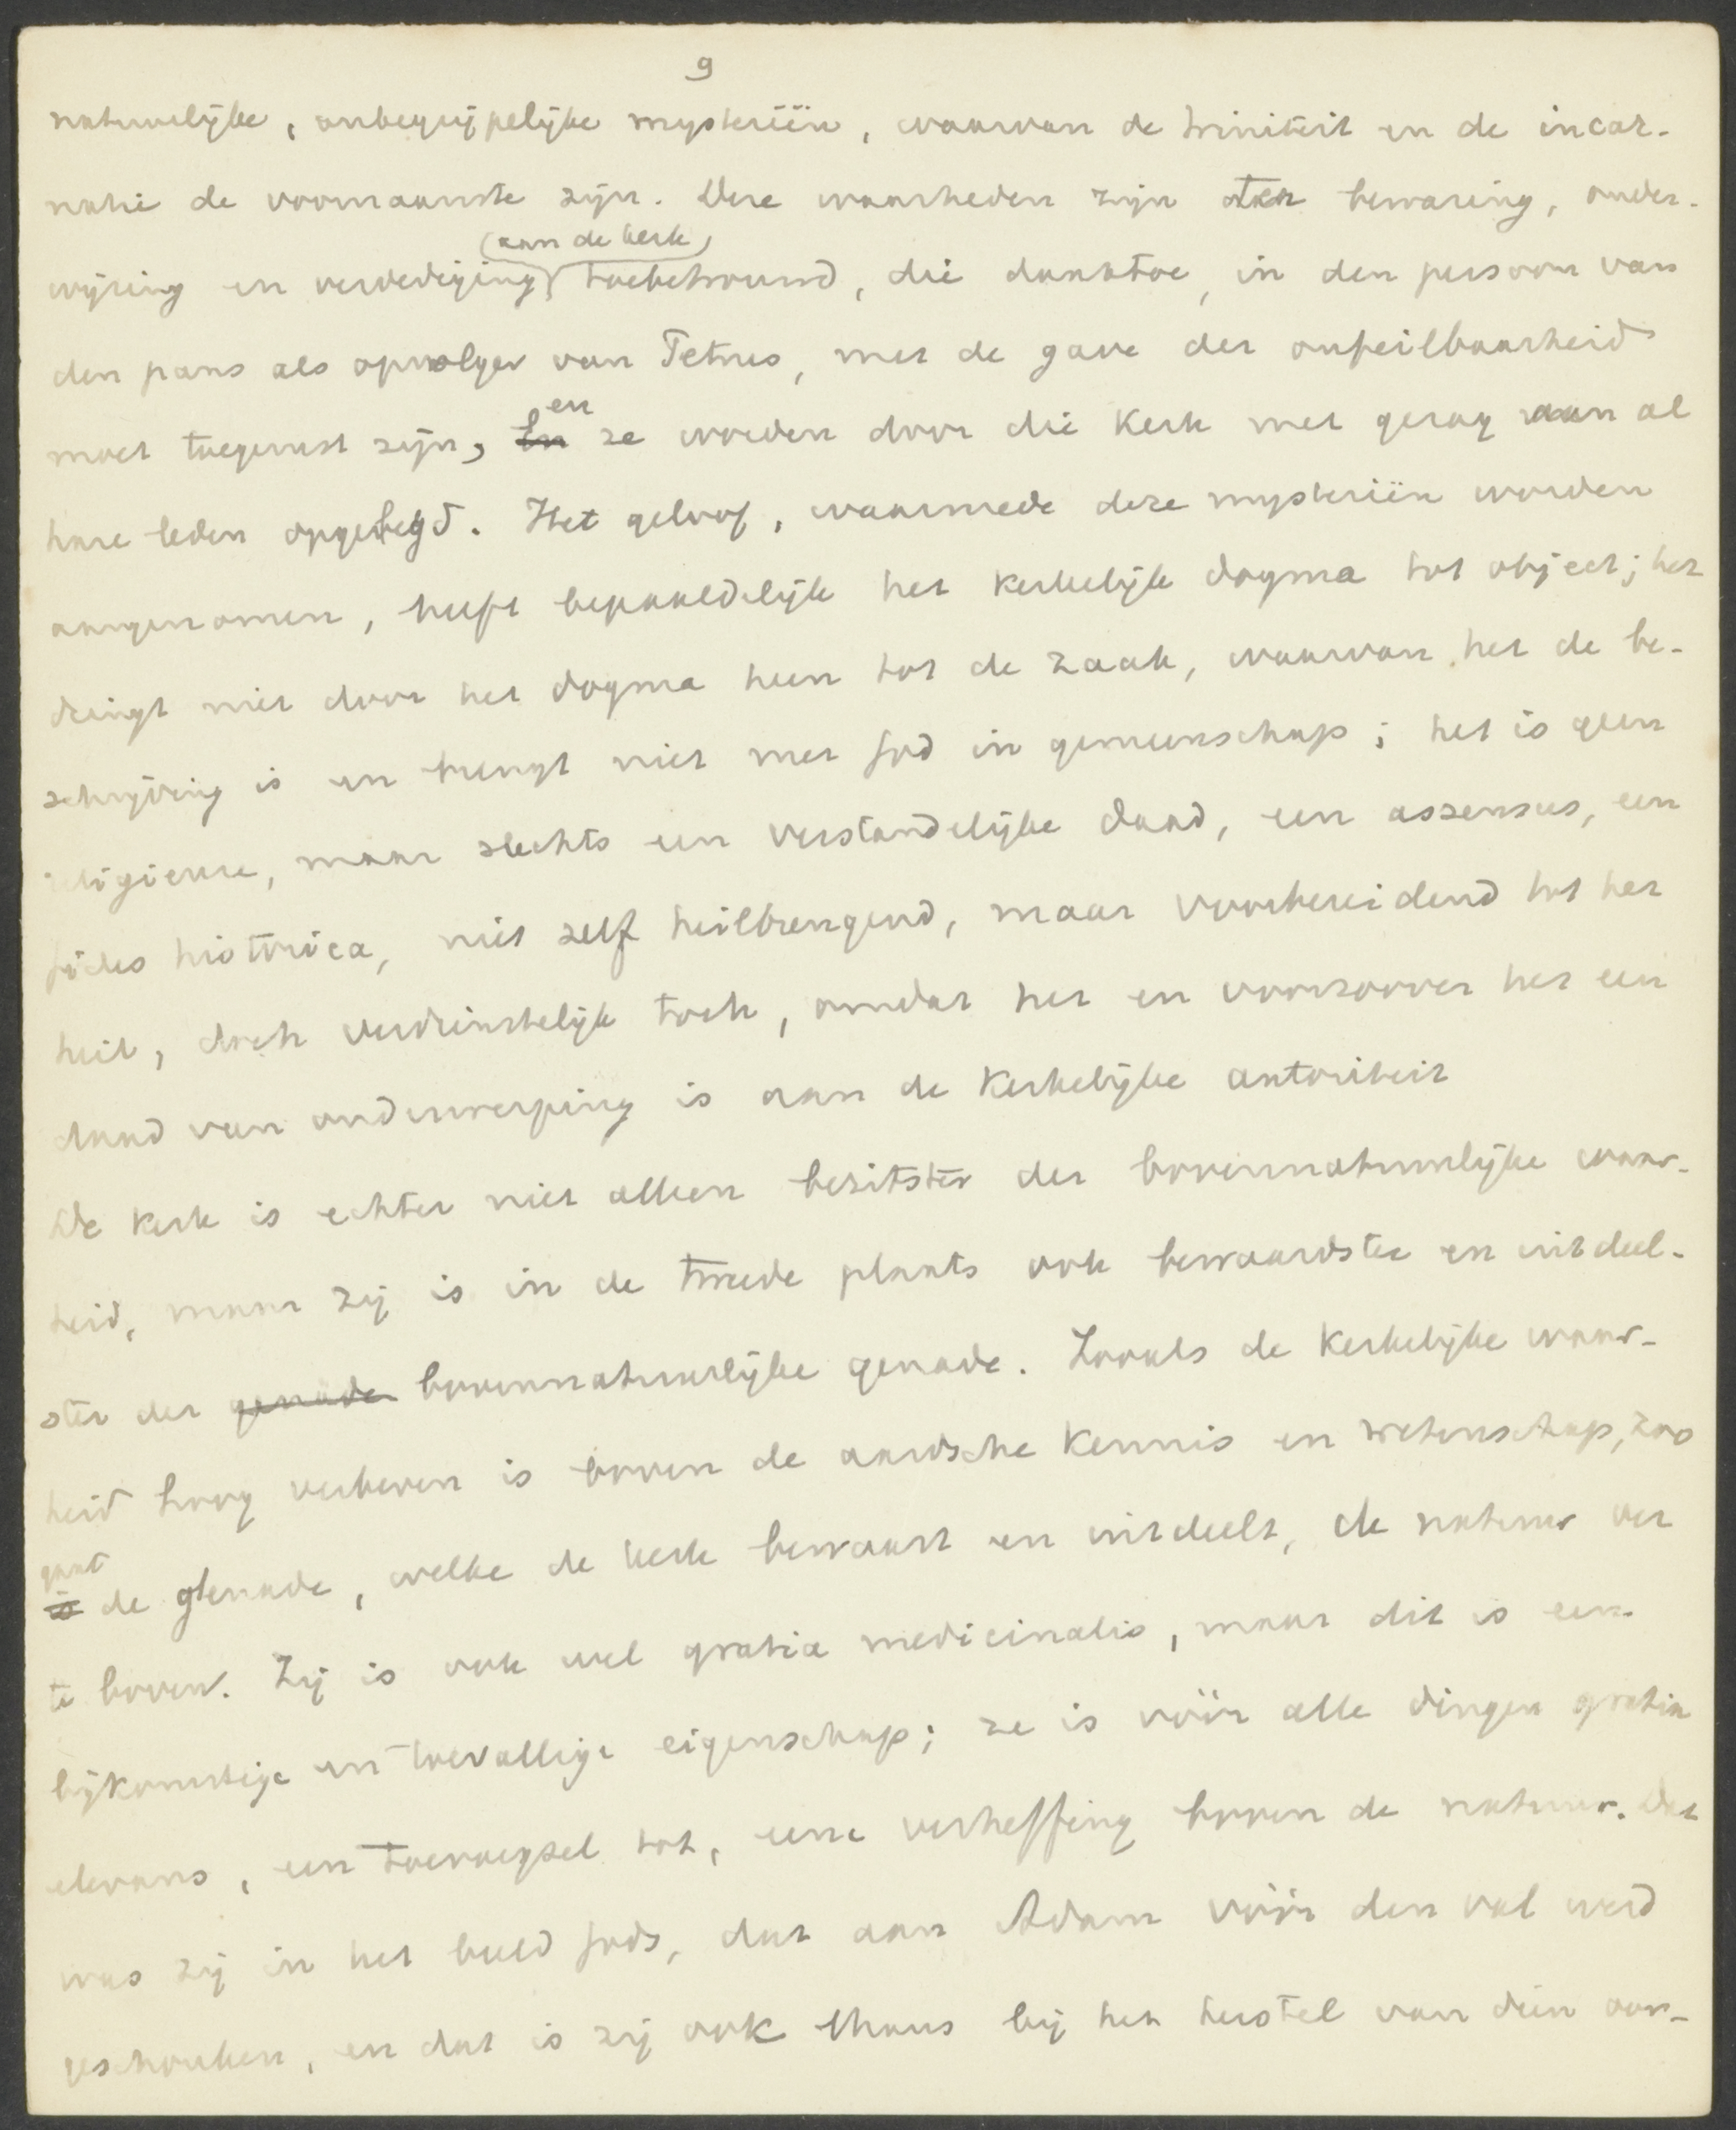 9
natuurlijke, onbegrijpelijke mysteriën, waarvan de triniteit en de incar-
natie de voornaamste zijn. Deze waarheden zijn ter bewaring, onder-
(aan de kerk)
wijzing en verdediging toebetrouwd, die daartoe, in den persoon van
den paus als opvolger van Petrus, met de gave der onfeilbaarheid
en
moet toegerust zijn, En ze worden door die Kerk met gezag aan al
hare leden opgelegd. Het geloof, waarmede deze mysteriën worden
aangenomen, heeft bepaaldelijk het kerkelijk dogma tot object; het
dringt niet door het dogma heen tot de zaak, waarvan het de be-
schrijving is en brengt niet met God in gemeenschap; het is geen
religieuse, maar slechts een verstandelijke daad, een assensus, een
fides historica, niet zelf heilbrengend, maar voorbereidend tot het
heil, doch verdienstelijk toch, omdat het en voorzoover het een
daad van onderwerping is aan de Kerkelijke autoriteit
De Kerk is echter niet alleen bezitster der bovennatuurlijke waar-
heid, maar zij is in de tweede plaats ook bewaardster en uitdeel-
ster der genade bovennatuurlijke genade. Zooals de Kerkelijke waar-
heid hoog verheven is boven de aardsche Kennis en wetenschap, zoo
gaat
is de genade, welke de kerk bewaart en uitdeelt, de natuur ver
te boven. Zij is ook wel gratia medicinalis, maar dit is een
bijkomstige en toevallige eigenschap; ze is vóór alle dingen gratia
elevans, een toevoegsel tot, eene verheffing boven de natuur. Dat
was zij in het beeld Gods, dat aan Adam vóór den val werd
geschonken, en dat is zij ook thans bij het herstel van dien oor-